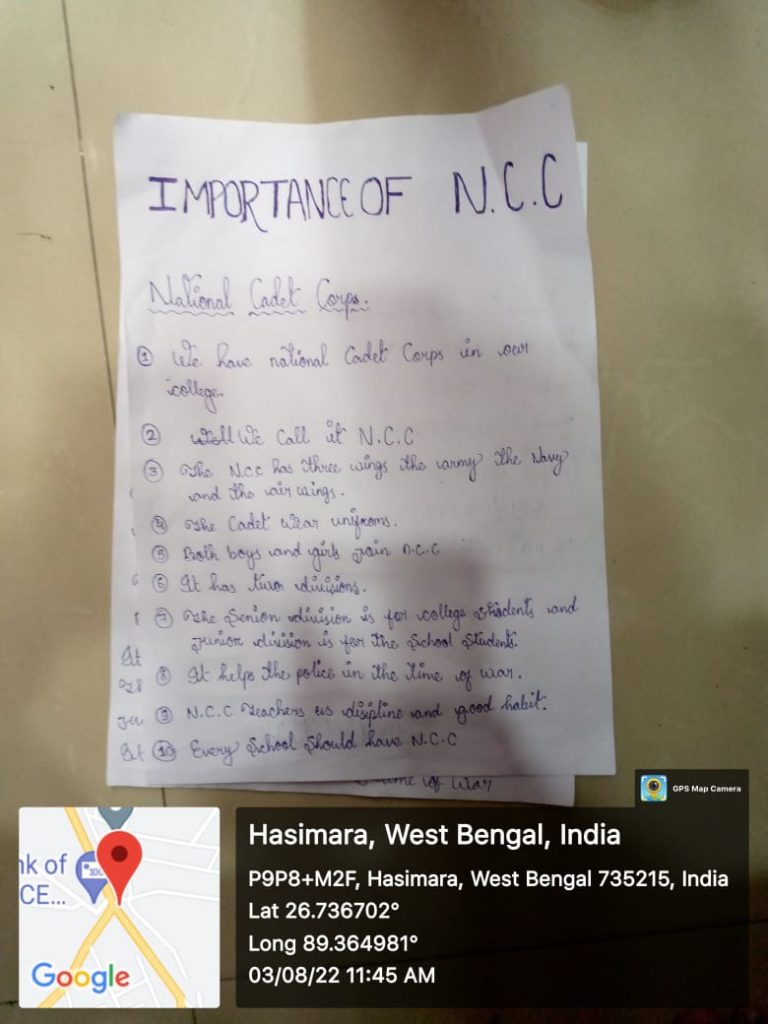 IMPORTANCE OF N.C.C
National Cadet Corps.
① We have national Cadet Corps in our
college.
② We Call it N.C.C
③ The N.C.C has three wings the army the Navy
and the air wings.
④ The Cadet Wear unifroms.
⑤ Both boys and girls join N.C.C
⑥ It has two divisions.
⑦ The Senior division is for college Students and
Junior division is for the School Students.
It
⑧ It helps the police in the time of war.
⑨ N.C.C Teachers us disipline and good habit.
It ⑩ Every School Should have N.C.C
time of War
GPS Map Camera
nk of
CE...
Google
Hasimara, West Bengal, India
P9P8+M2F, Hasimara, West Bengal 735215, India
Lat 26.736702°
Long 89.364981°
03/08/22 11:45 AM